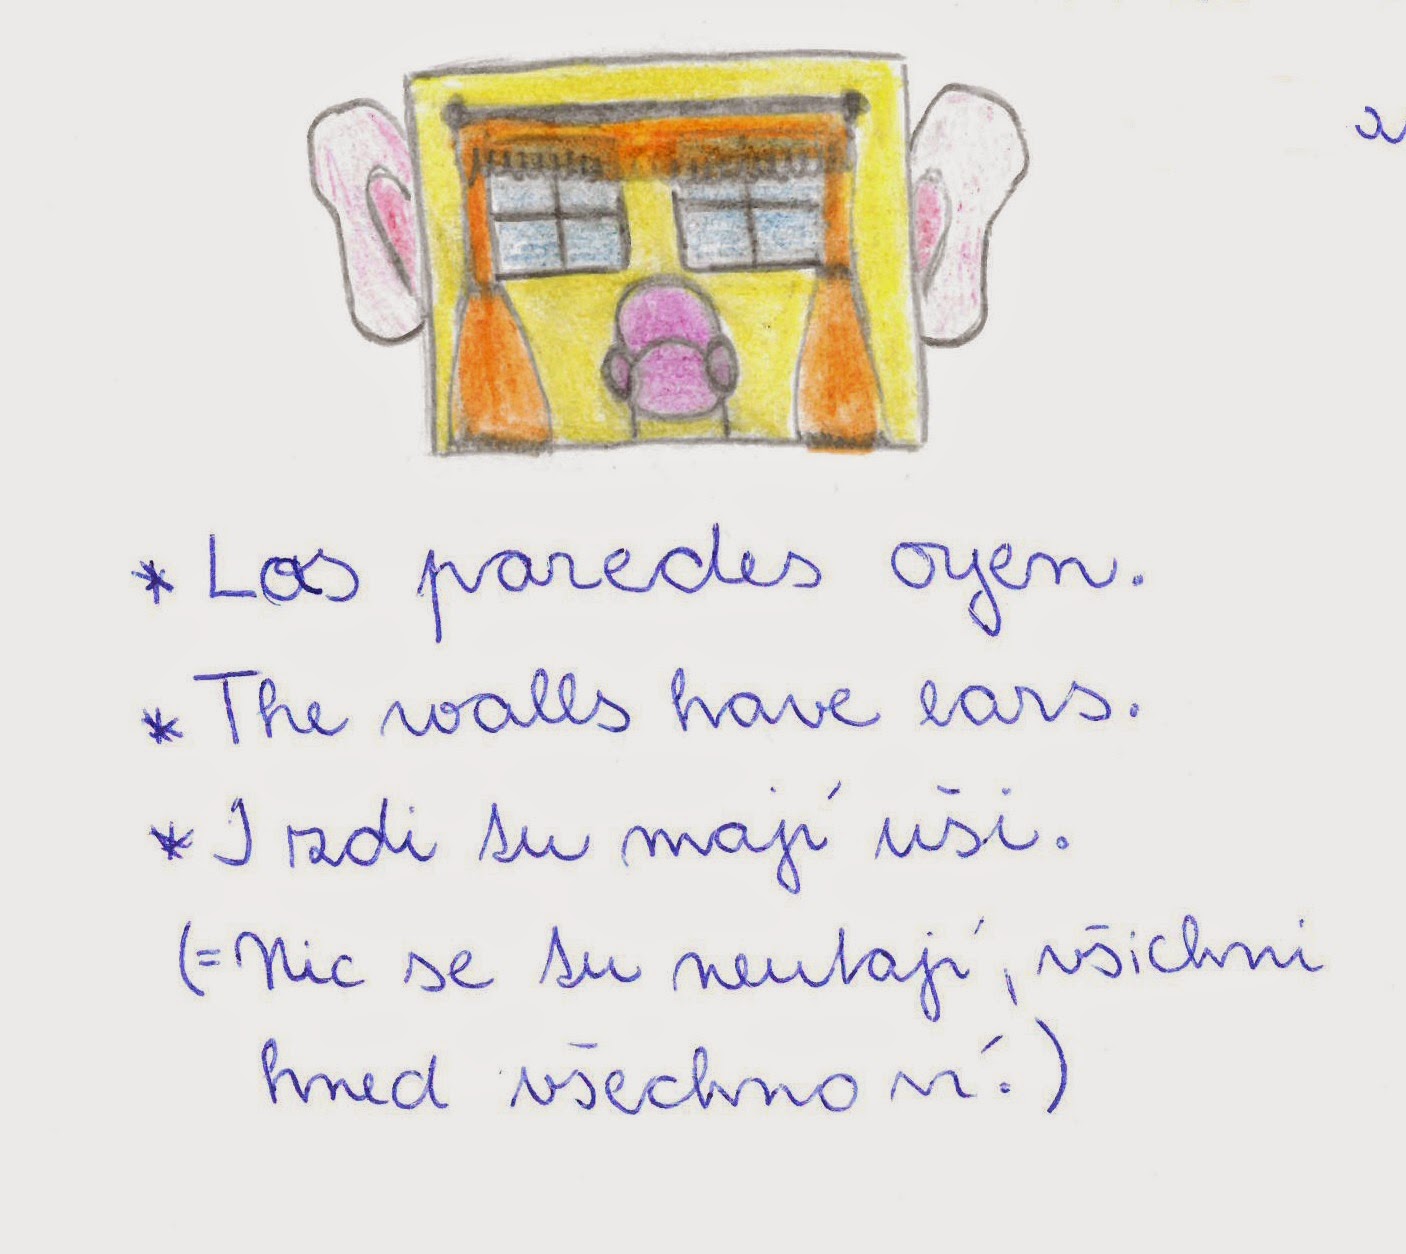 * Las paredes oyen.
* The walls have ears.
* I zdi tu mají uši.
(= Nic se tu neutají, všichni
hned všechno ví.)